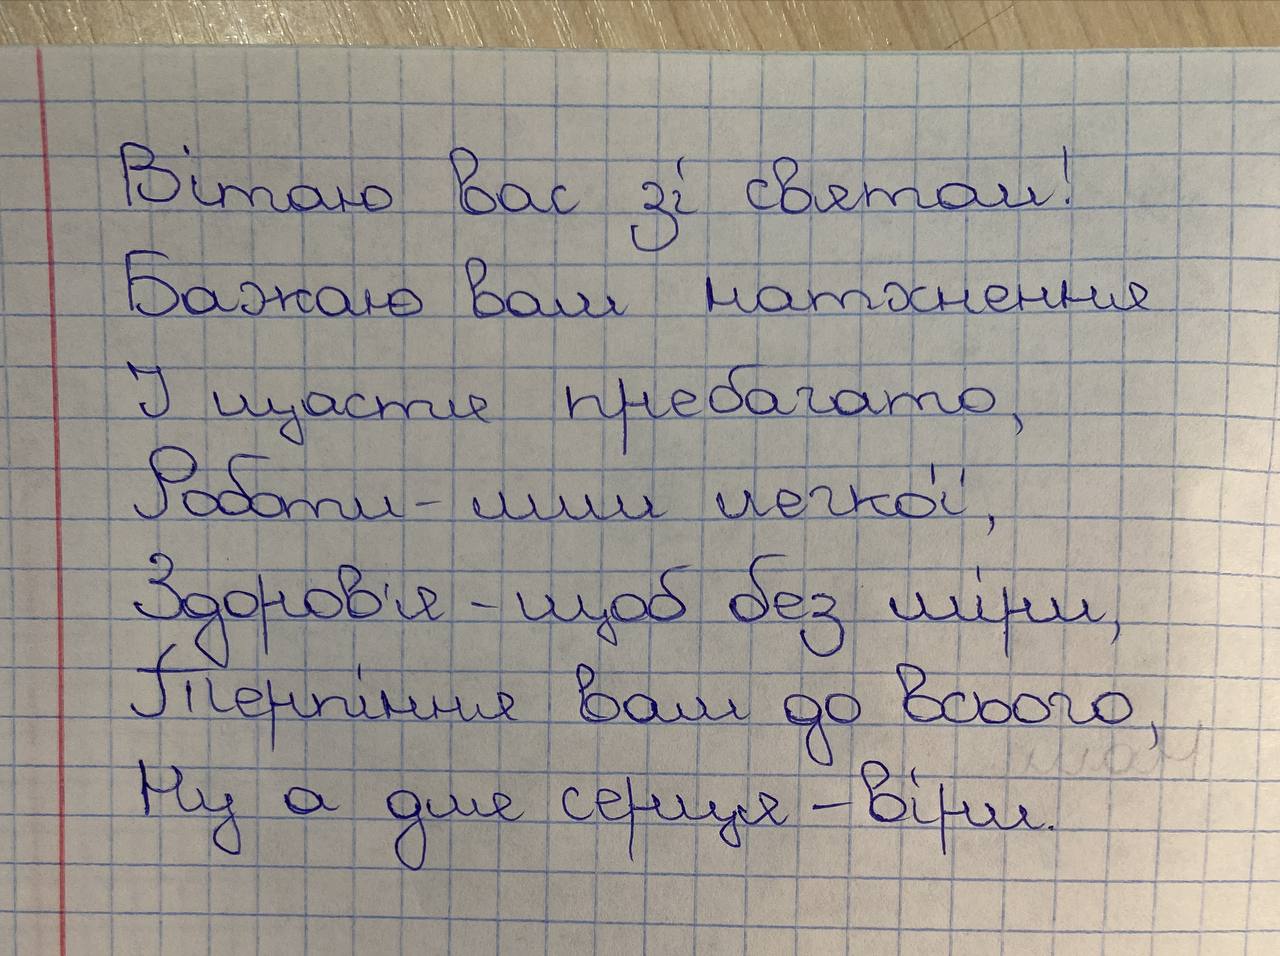 Вітаю вас зі святом!
Бажаю вам натхнення
І щастя пребагато,
Роботи - лиш легкої,
Здоров'я - щоб без міри,
Терпіння вам до всього,
Ну а для серця - Віри.